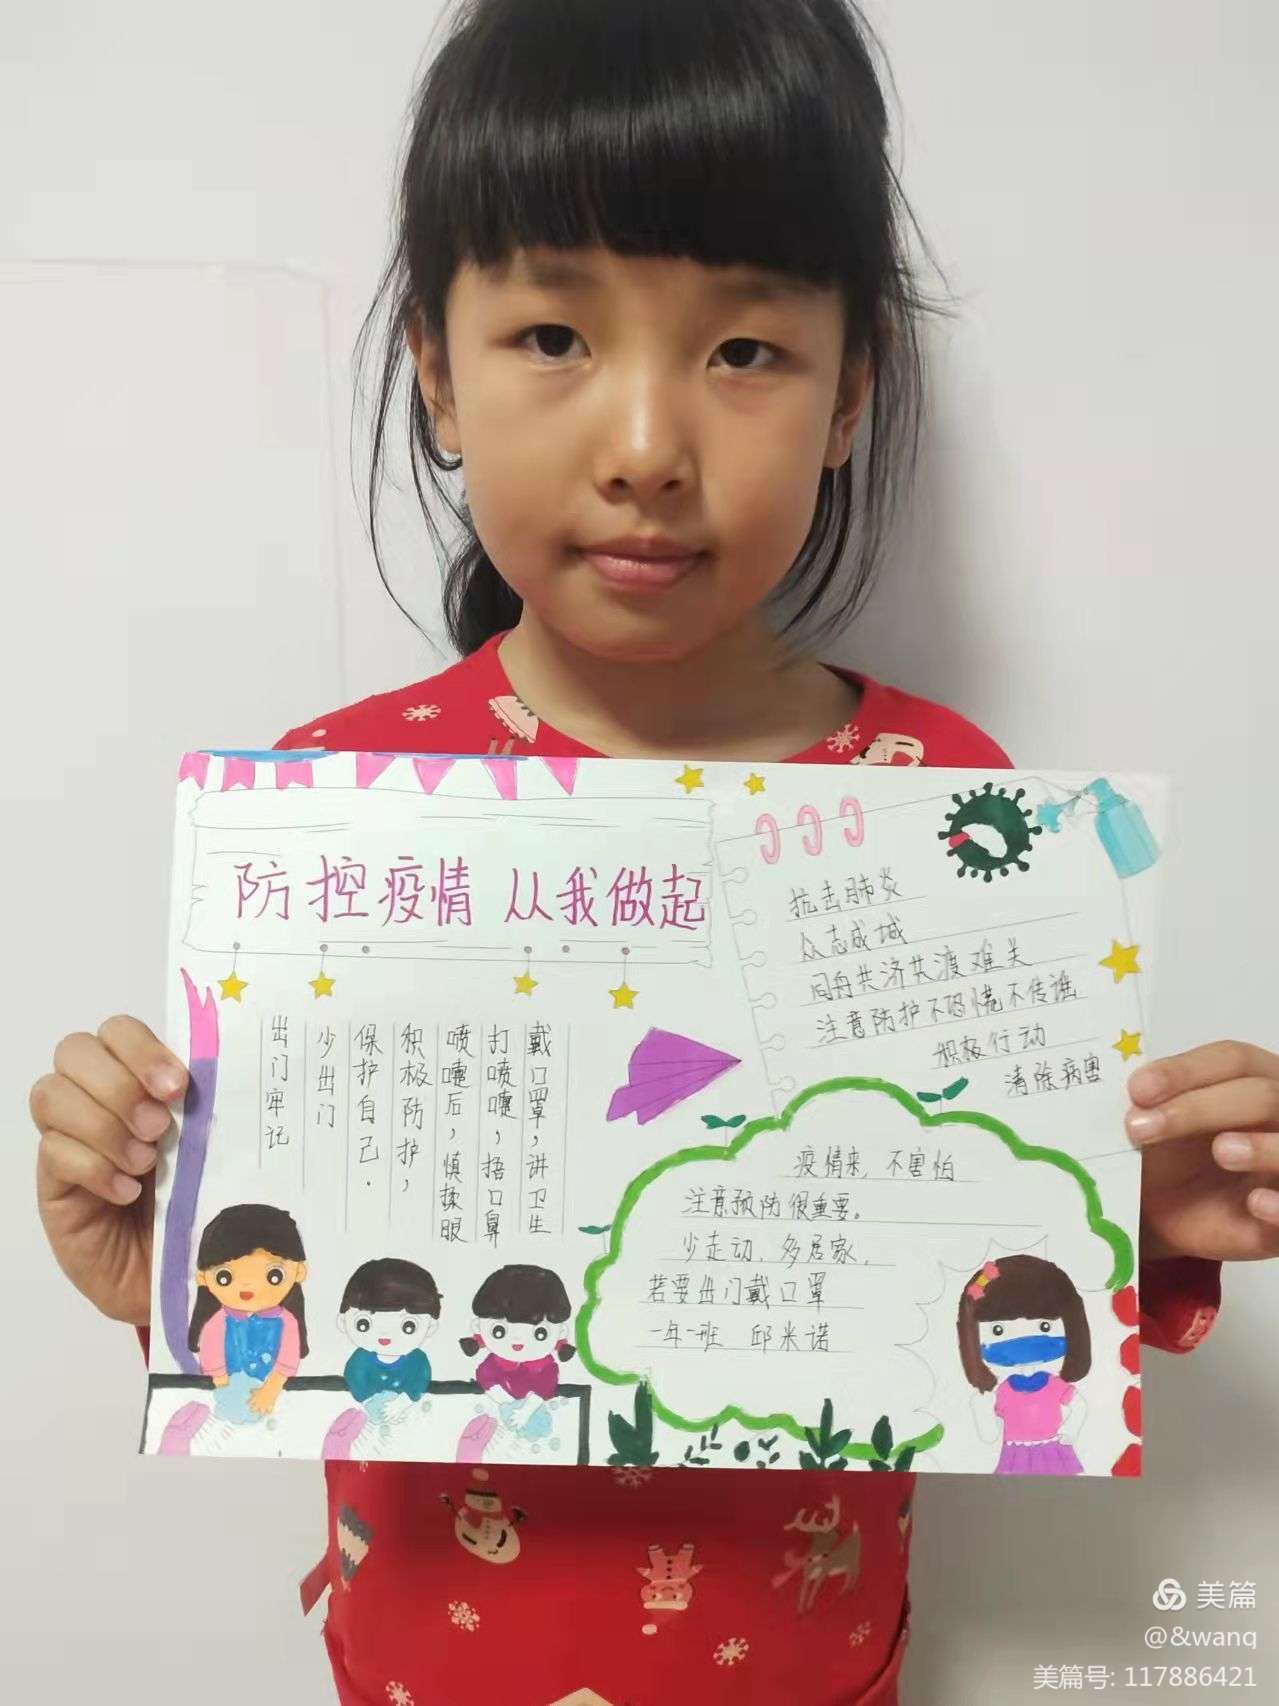 防控疫情 从我做起
抗击肺炎
众志成城
同舟共济共渡难关
注意防护不恐慌不传谣
积极行动
清除病害
戴口罩，讲卫生
打喷嚏，捂口鼻
喷嚏后，慎揉眼
积极防护，
保护自己.
少出门
出门牢记
疫情来，不害怕
注意预防很重要。
少走动，多居家，
若要出门戴口罩
一年一班 邱米诺
美篇
@&wang
美篇号: 117886421